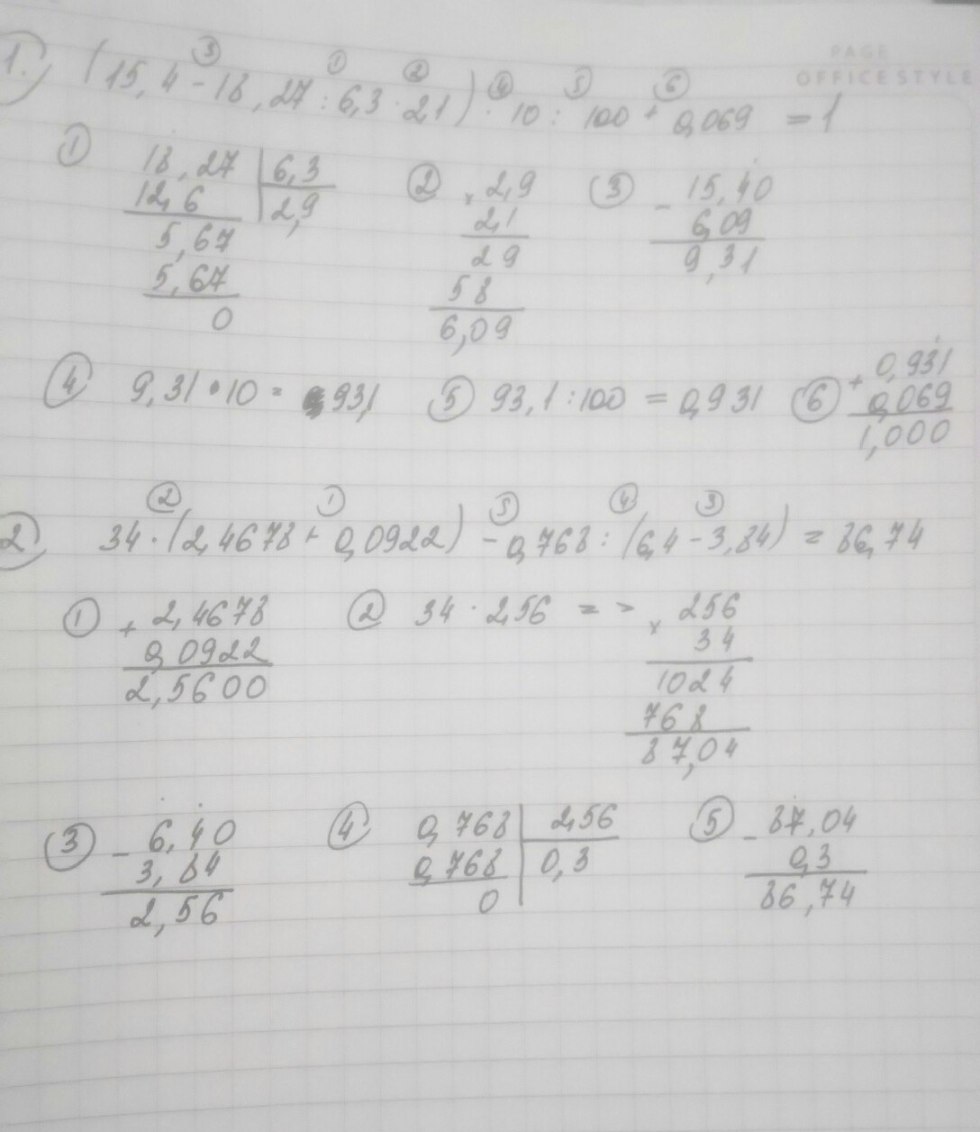 PAGE
OFFICE STYLE
③ ① ② ④ ⑤ ⑥
1. (15,4 - 18,27 : 6,3 · 2,1) · 10 : 100 + 0,069 = 1
① 18,27 | 6,3
12,6 | 2,9
5,67
5,67
0
② × 2,9
2,1
29
58
6,09
③ - 15,40
6,09
9,31
④ 9,31 · 10 = 93,1
⑤ 93,1 : 100 = 0,931
⑥ + 0,931
0,069
1,000
② ① ⑤ ④ ③
2) 34 · (2,4678 + 0,0922) - 0,768 : (6,4 - 3,84) = 86,74
① + 2,4678
0,0922
2,5600
② 34 · 2,56 = > × 256
34
1024
768
87,04
③ - 6,40
3,84
2,56
④ 0,768 | 2,56
0,768 | 0,3
0
⑤ - 87,04
0,3
86,74